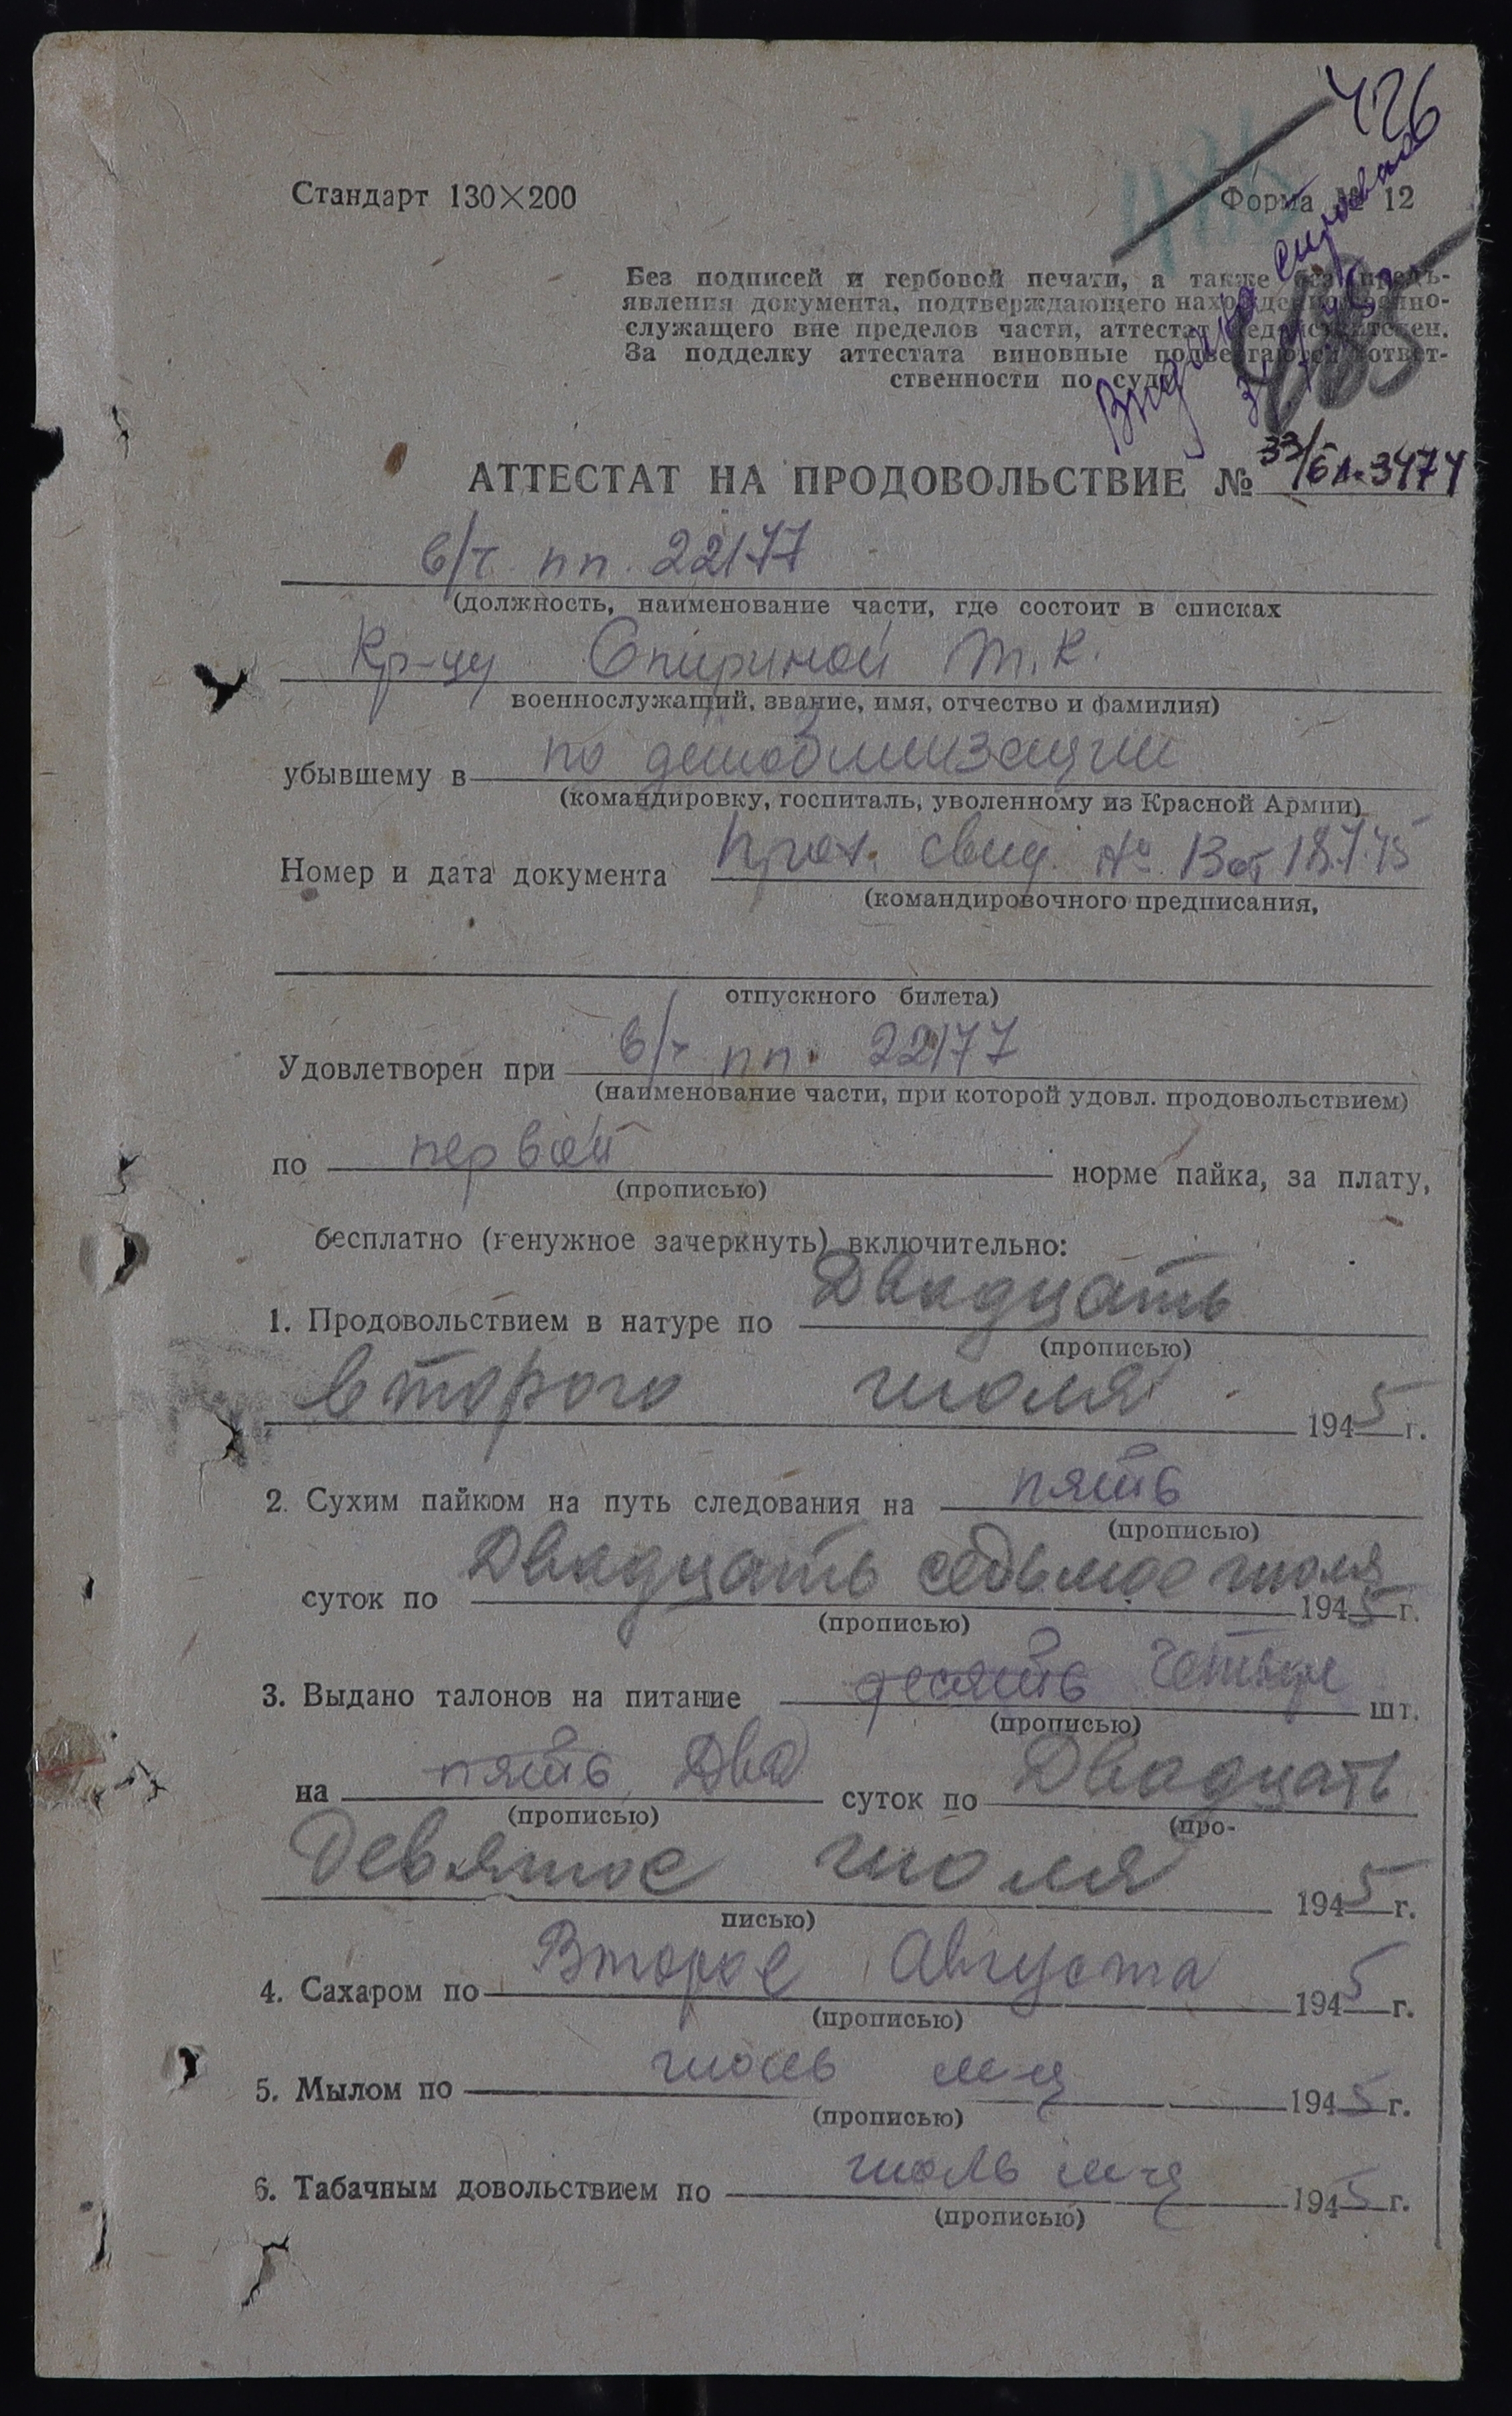 426
Стандарт 130×200
Форма № 12
Выдана
Без подписей и гербовой печати, а также без предъ-
явления документа, подтверждающего нахождение военно-
служащего вне пределов части, аттестат недействителен.
За подделку аттестата виновные подвергаются ответ-
ственности по суду
АТТЕСТАТ НА ПРОДОВОЛЬСТВИЕ №
в/ч пп. 22177
(должность, наименование части, где состоит в списках
Кр-цу Спириной Т. К.
военнослужащий, звание, имя, отчество и фамилия)
убывшему в по демобилизации
(командировку, госпиталь, уволенному из Красной Армии)
Номер и дата документа прод. свид. № 13 от 18.7.45
(командировочного предписания,
отпускного билета)
Удовлетворен при в/ч пп. 22177
(наименование части, при которой удовл. продовольствием)
по первой норме пайка, за плату,
(прописью)
бесплатно (ненужное зачеркнуть) включительно:
1. Продовольствием в натуре по Двадцать
(прописью)
второго июля 1945 г.
2. Сухим пайком на путь следования на пять
(прописью)
суток по Двадцать седьмое июля 1945 г.
(прописью)
3. Выдано талонов на питание десять четыре шт.
(прописью)
на пять Два суток по Двадцать
(прописью) (про-
Девятое июля 1945 г.
писью)
4. Сахаром по Второе Августа 1945 г.
(прописью)
5. Мылом по июль м-ц 1945 г.
(прописью)
6. Табачным довольствием по июль м-ц 1945 г.
(прописью)